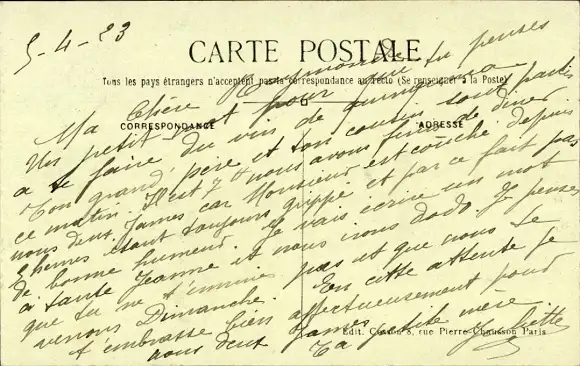 5-4-23
CARTE POSTALE
Tous les pays étrangers n'acceptent pas la correspondance au recto (Se renseigner à la Poste)
CORRESPONDANCE
ADRESSE
Ma Chère Raymonde
Un petit mot pour que tu penses
a te faire du vin de quinquina
Ton grand' père et ton cousin sont partis
ce matin. Il est 7 H nous avons fini de diner
nous deux James car Monsieur est couché depuis
heures étant toujours grippé et par ce fait pas
de bonne humeur. Je vais écrire un mot
à tante Jeanne et nous irons dodo. Je penses
que tu ne t'ennuies pas et que nous te
verrons Dimanche. En cette attente je
t'embrasse bien affectueusement pour
nous deux James
Ta petite mère
Juliette
Édit. 8, rue Pierre-Chausson Paris